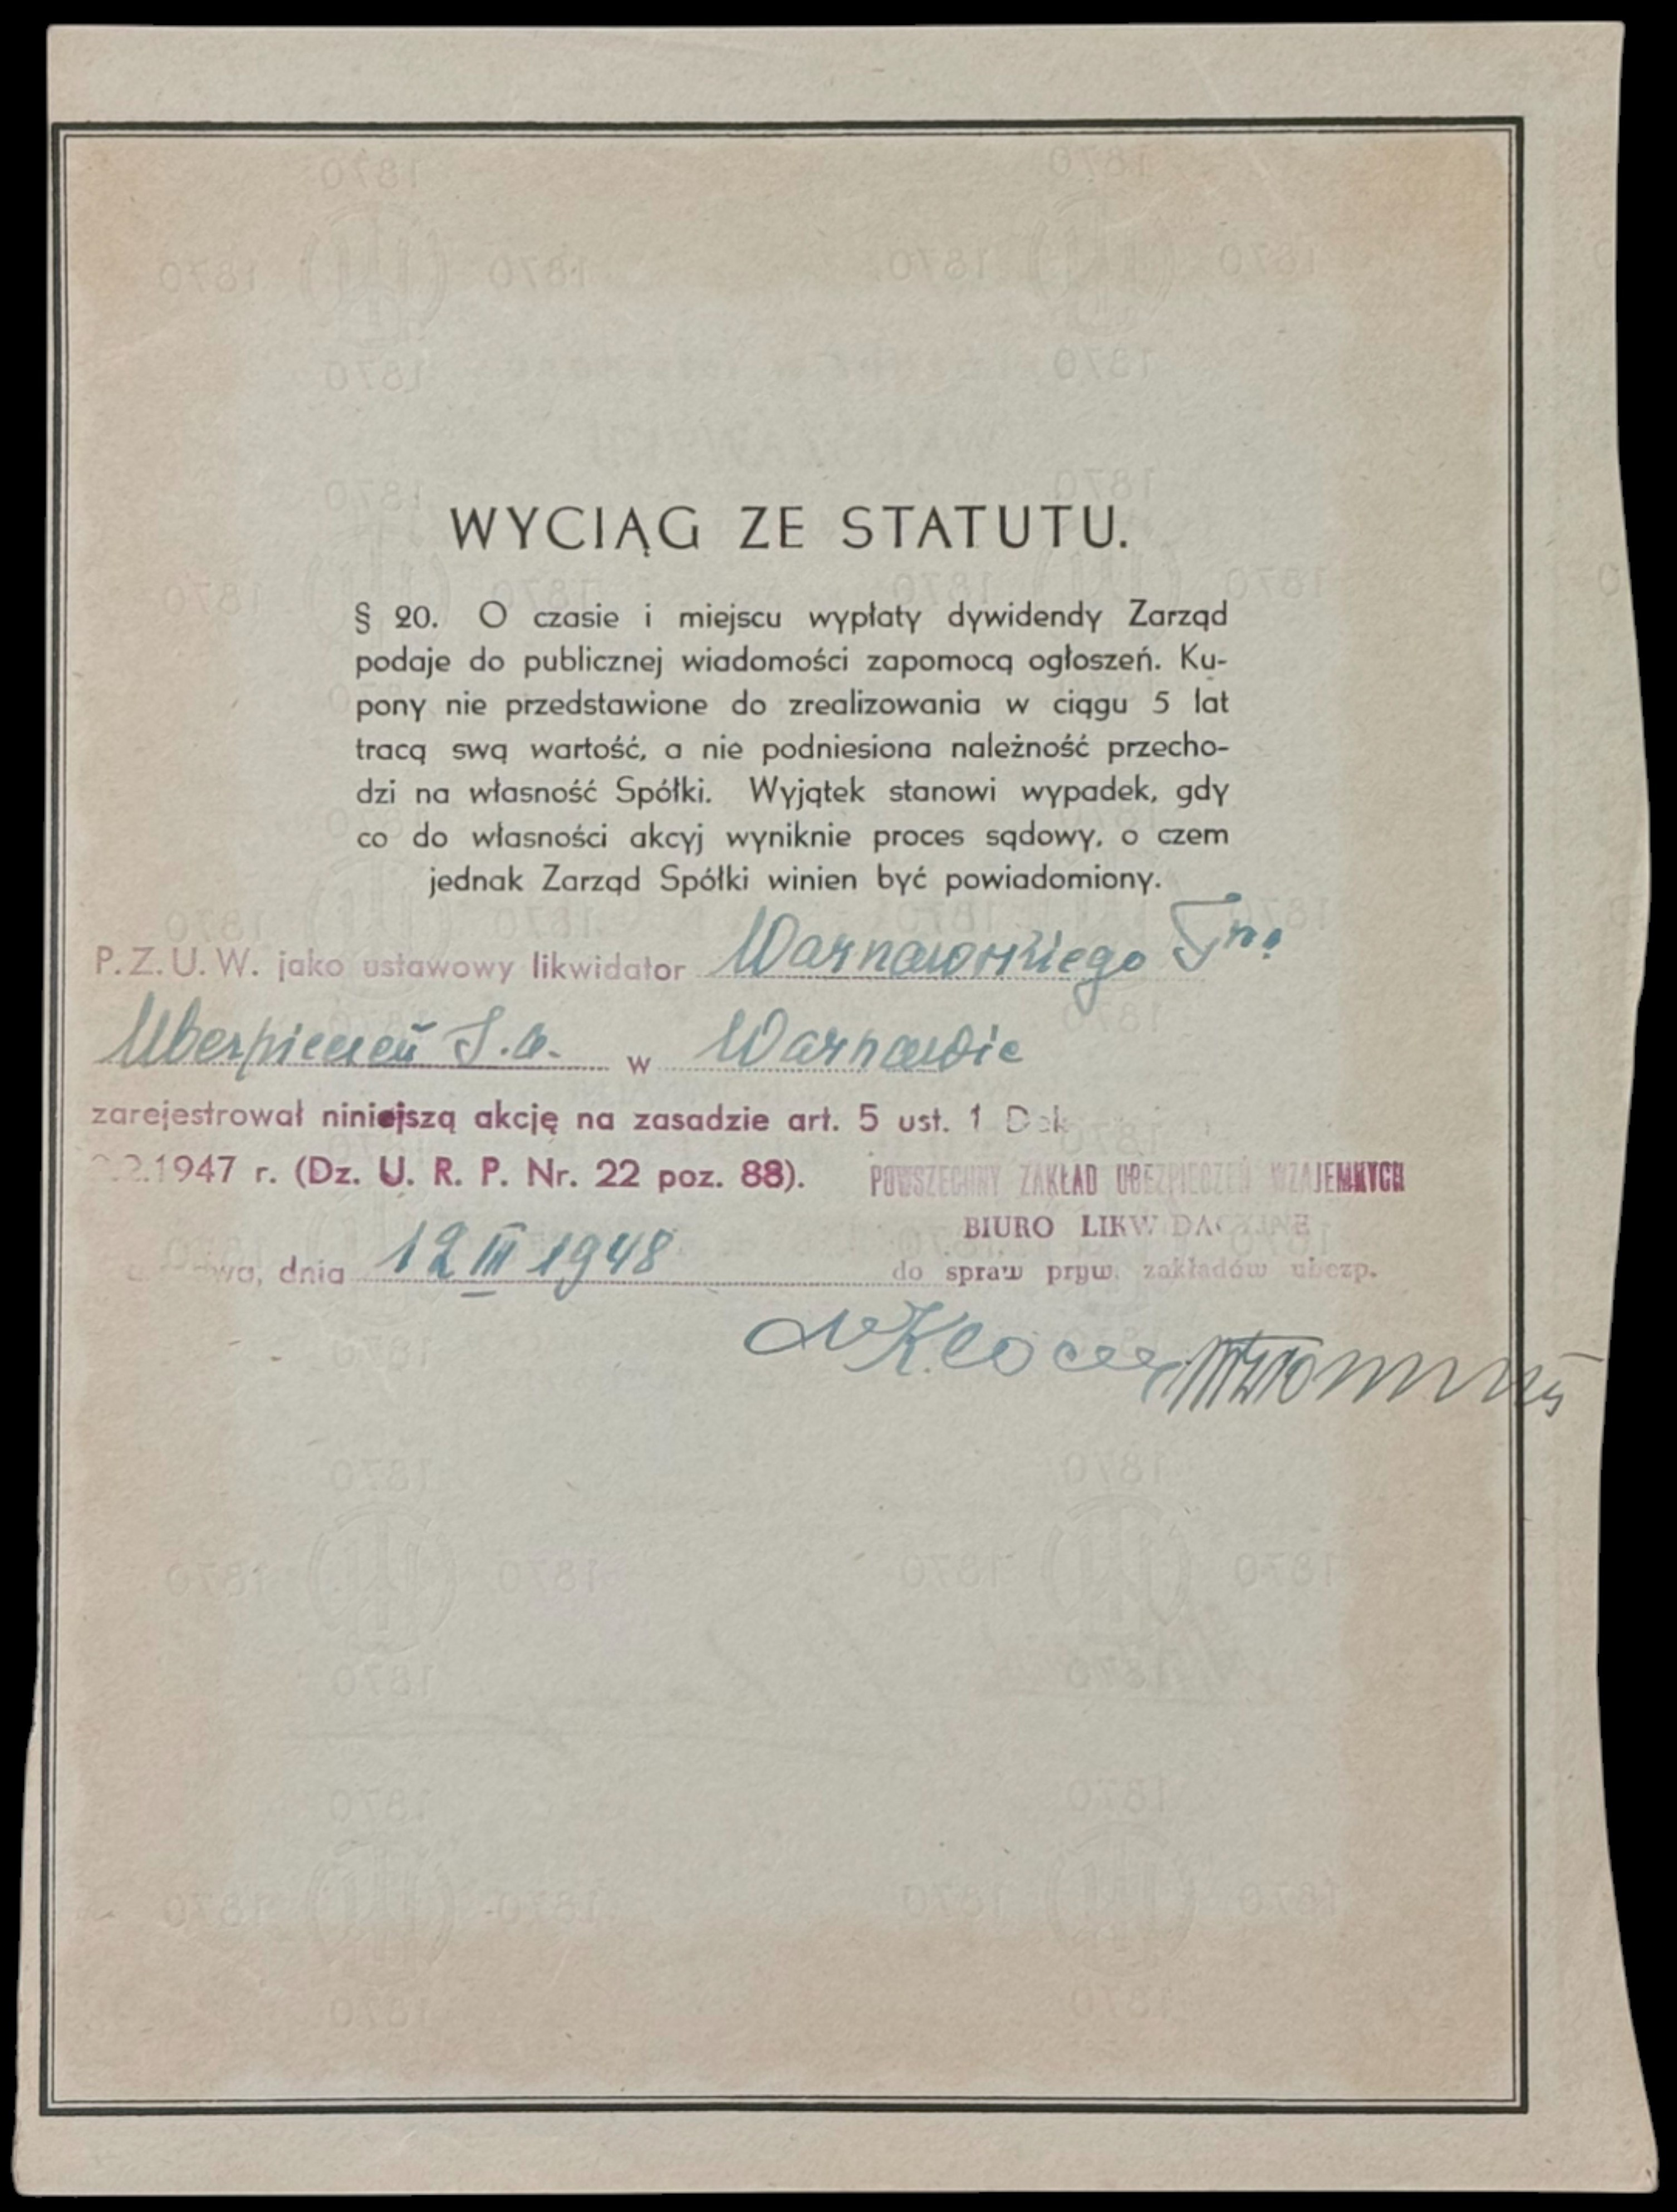 WYCIĄG ZE STATUTU.
§ 20. O czasie i miejscu wypłaty dywidendy Zarząd
podaje do publicznej wiadomości zapomocą ogłoszeń. Ku-
pony nie przedstawione do zrealizowania w ciągu 5 lat
tracą swą wartość, a nie podniesiona należność przecho-
dzi na własność Spółki. Wyjątek stanowi wypadek, gdy
co do własności akcyj wyniknie proces sądowy, o czem
jednak Zarząd Spółki winien być powiadomiony.
P.Z.U.W. jako ustawowy likwidator Warszawskiego
Ubezpieczeń S.A. w Warszawie
zarejestrował niniejszą akcję na zasadzie art. 5 ust. 1 Dek
2.1947 r. (Dz. U. R. P. Nr. 22 poz. 88).
POWSZECHNY ZAKŁAD UBEZPIECZEŃ WZAJEMNYCH
BIURO LIKWIDACYJNE
do spraw pryw. zakładów ubezp.
dnia 12 III 1948